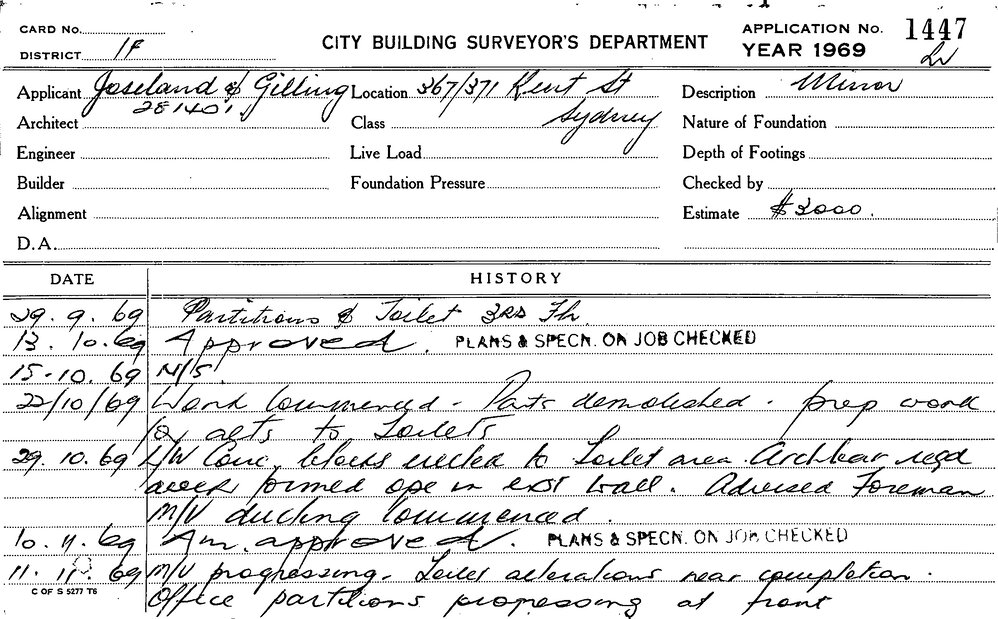 CARD No. CITY BUILDING SURVEYOR'S DEPARTMENT APPLICATION No. 1447
DISTRICT 1F YEAR 1969
Applicant Joseland & Gilling Location 367/371 Kent St Description Minor
281401
Architect Class Sydney Nature of Foundation
Engineer Live Load Depth of Footings
Builder Foundation Pressure Checked by
Alignment Estimate $3000.
D.A.
DATE HISTORY
29.9.69 Partitions & Toilet 3RD Flr
13.10.69 Approved. PLANS & SPECN. ON JOB CHECKED
15-10.69 N/S.
22/10/69 Work Commenced - Parts demolished - prep work
for alts to Toilets
29.10.69 L/W Conc, blocks erected to Toilet area. Archbar reqd
over formed ope in ext wall. Advised Foreman
M/V ducting Commenced.
10.11.69 Am. approved. PLANS & SPECN. ON JOB CHECKED
11.11.69 M/V progressing. Toilet alterations near completion.
C OF S 5277 T6
Office partitions progressing at front